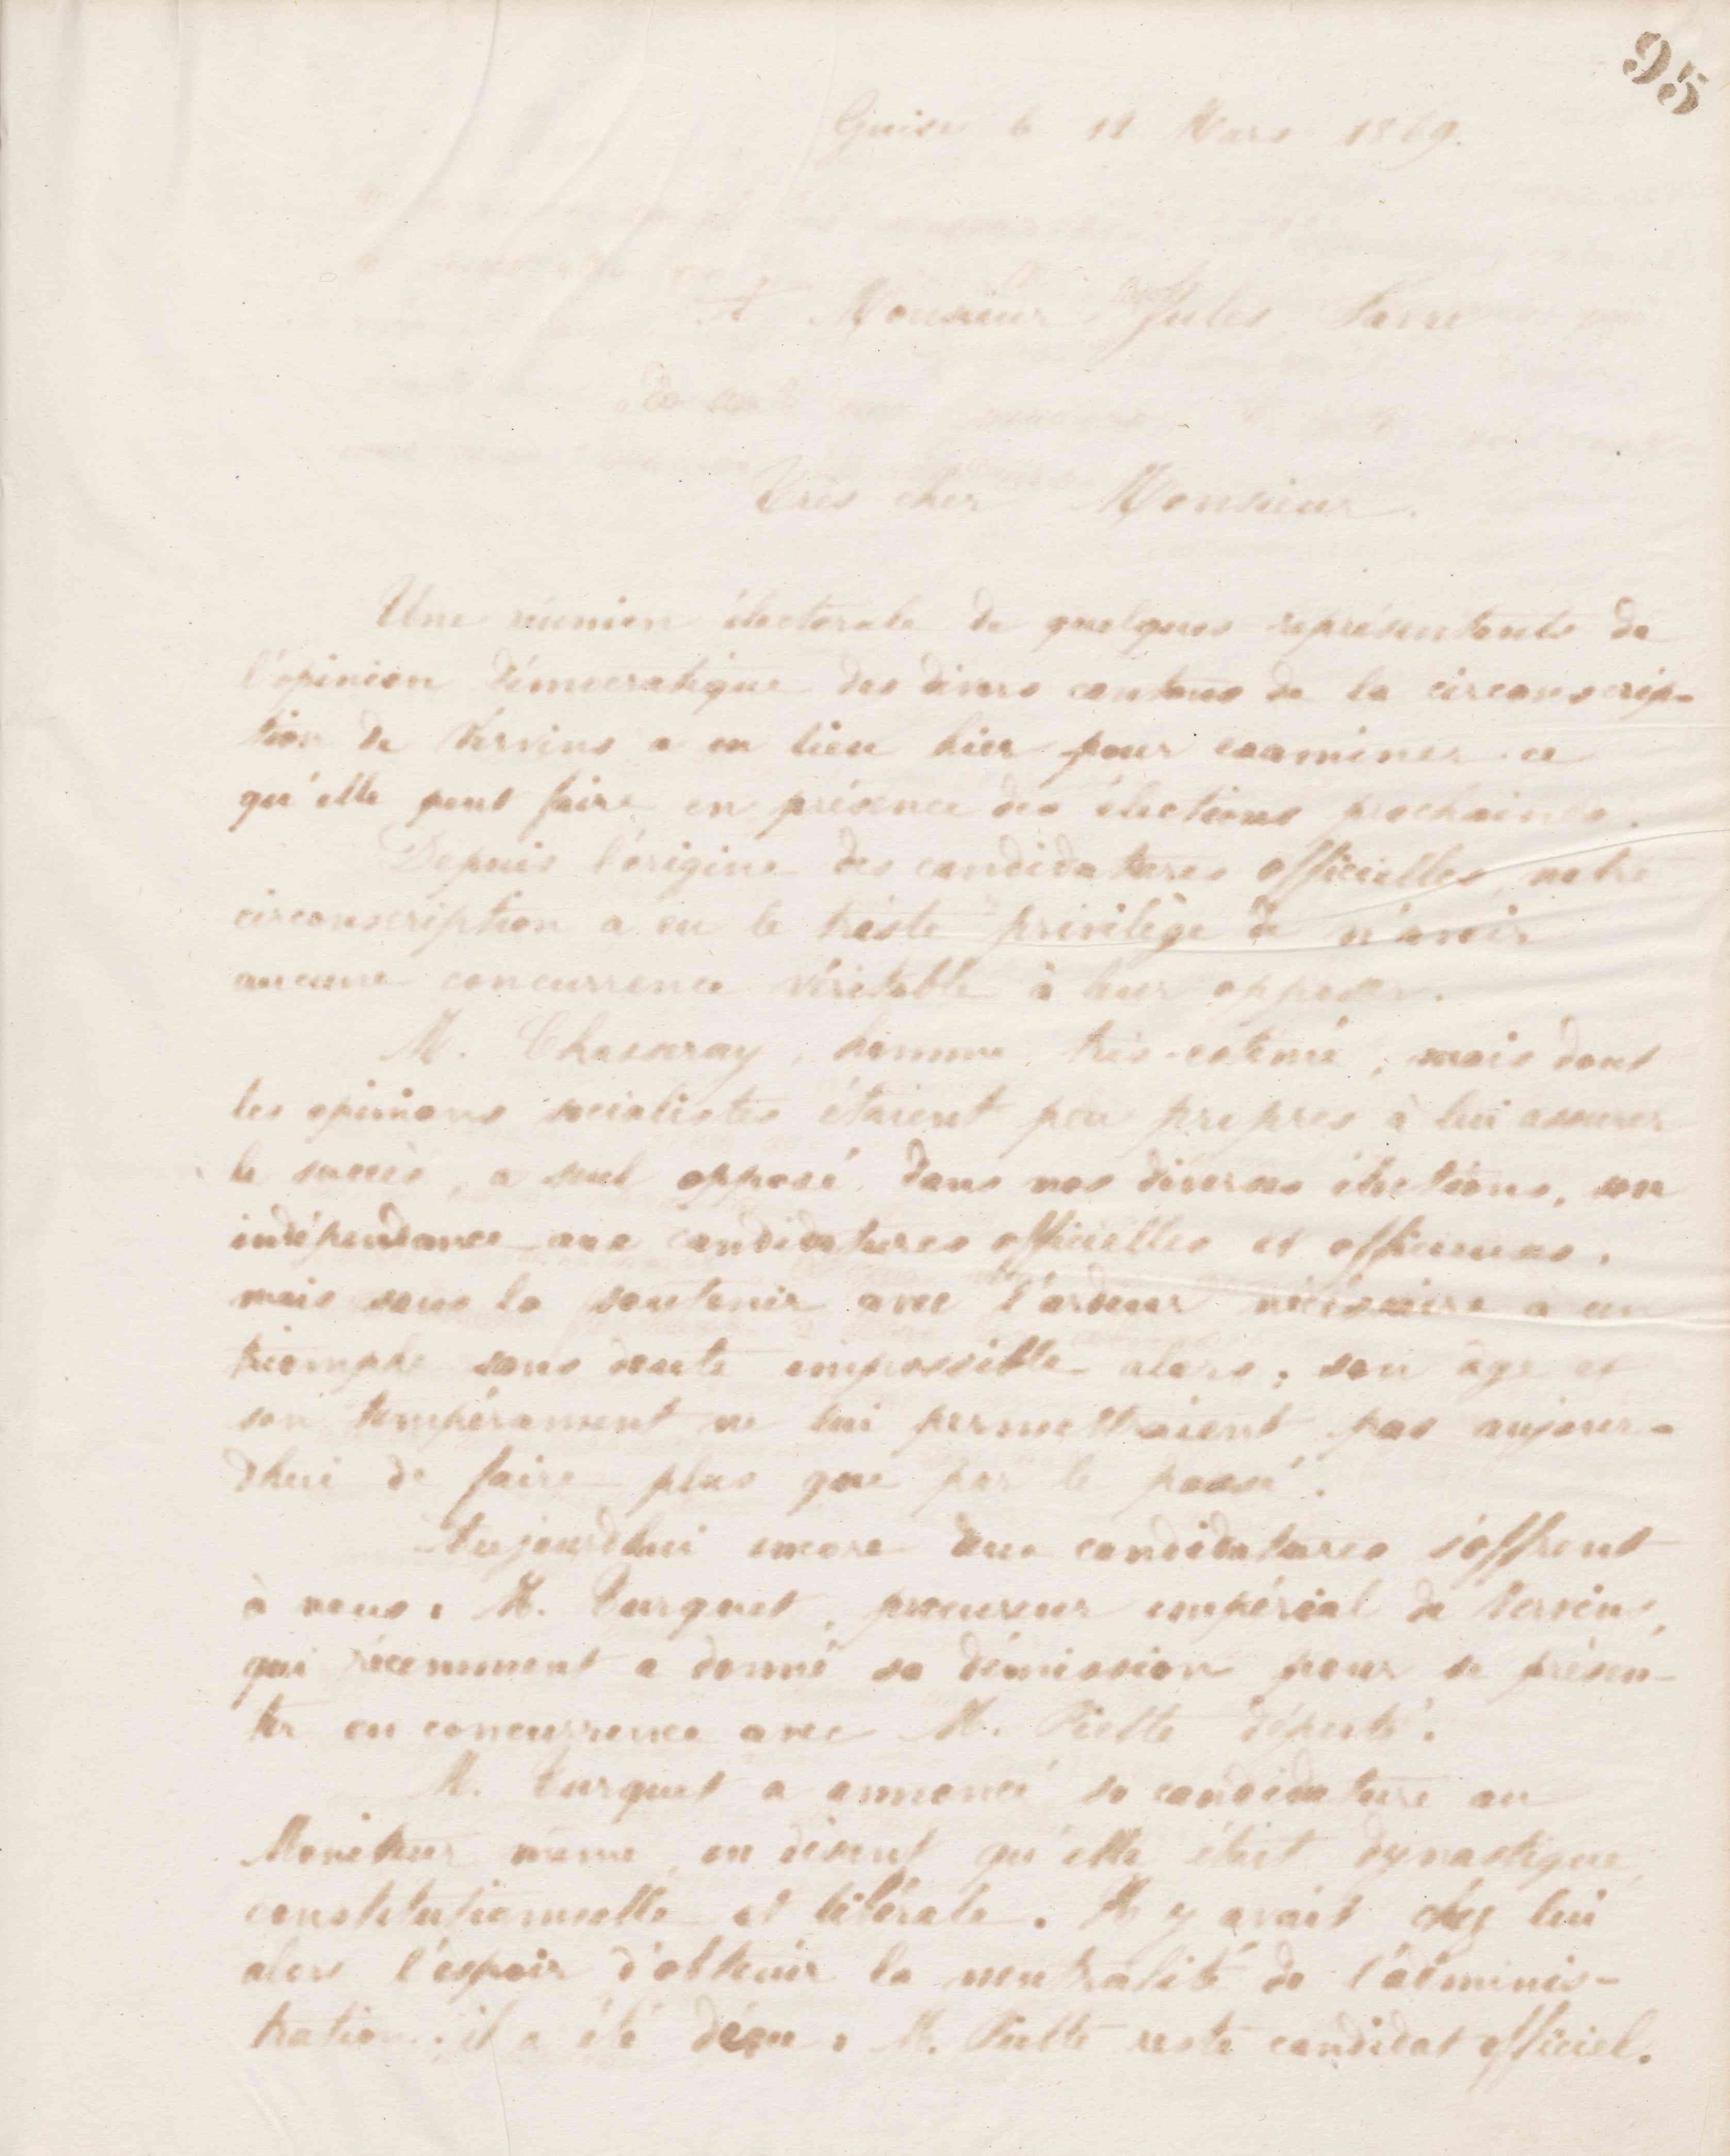 95
Guise le 11 Mars 1869.
A Monsieur Jules Favre
Très cher Monsieur.
Une réunion électorale de quelques représentants de
l'opinion démocratique des divers cantons de la circonscrip-
tion de Vervins a eu lieu hier pour examiner ce
qu'elle peut faire en présence des élections prochaines.
Depuis l'origine des candidatures officielles, notre
circonscription a eu le triste privilège de n'avoir
aucune concurrence véritable à leur opposer.
M. homme très-estimé, mais dont
les opinions socialistes étaient peu propres à lui assurer
le succès, a seul opposé dans nos diverses élections, son
indépendance aux candidatures officielles et officieuses,
mais sans la soutenir avec l'ardeur nécessaire à un
triomphe sans doute impossible alors ; son âge et
son tempérament ne lui permettraient pas aujour-
dhui de faire plus que par le passé.
Aujourdhui encore deux candidatures s'offrent
à nous. M. Turquet, procureur impérial de Vervins,
qui récemment a donné sa démission pour se présen-
ter en concurrence avec M. Piette député.
M. Turquet a annoncé sa candidature au
Moniteur même, en disant qu'elle était dynastique,
constitutionnelle et libérale. Il y avait chez lui
alors l'espoir d'obtenir la neutralité de l'adminis-
tration ; il a été déçu. M. Piette reste candidat officiel.